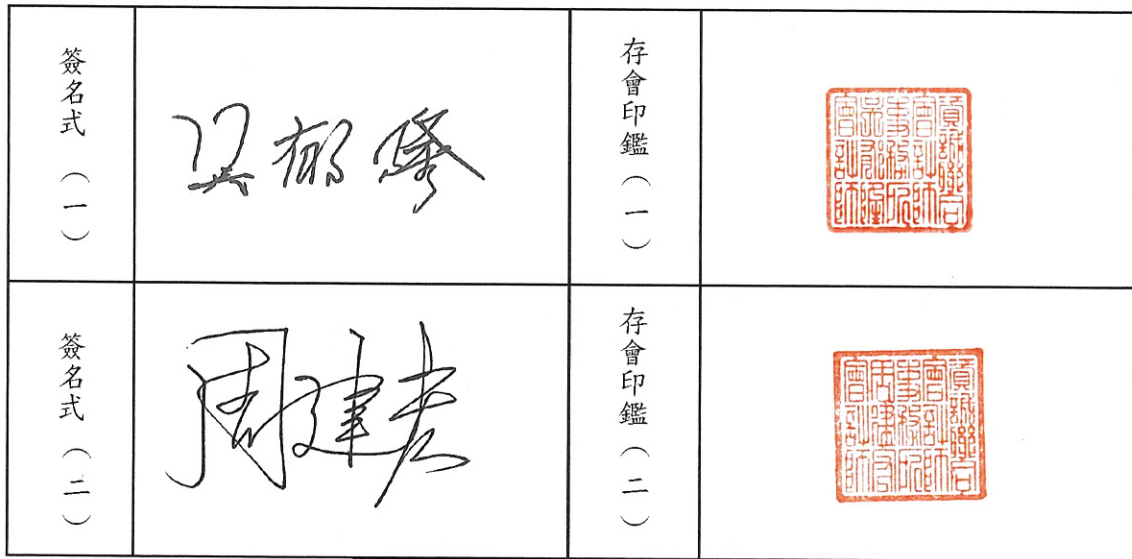 簽名式（一）
吳郁隆
存會印鑑（一）
資誠聯合
會計師
事務所
吳郁隆
會計師
簽名式（二）
周建宏
存會印鑑（二）
資誠聯合
會計師
事務所
周建宏
會計師